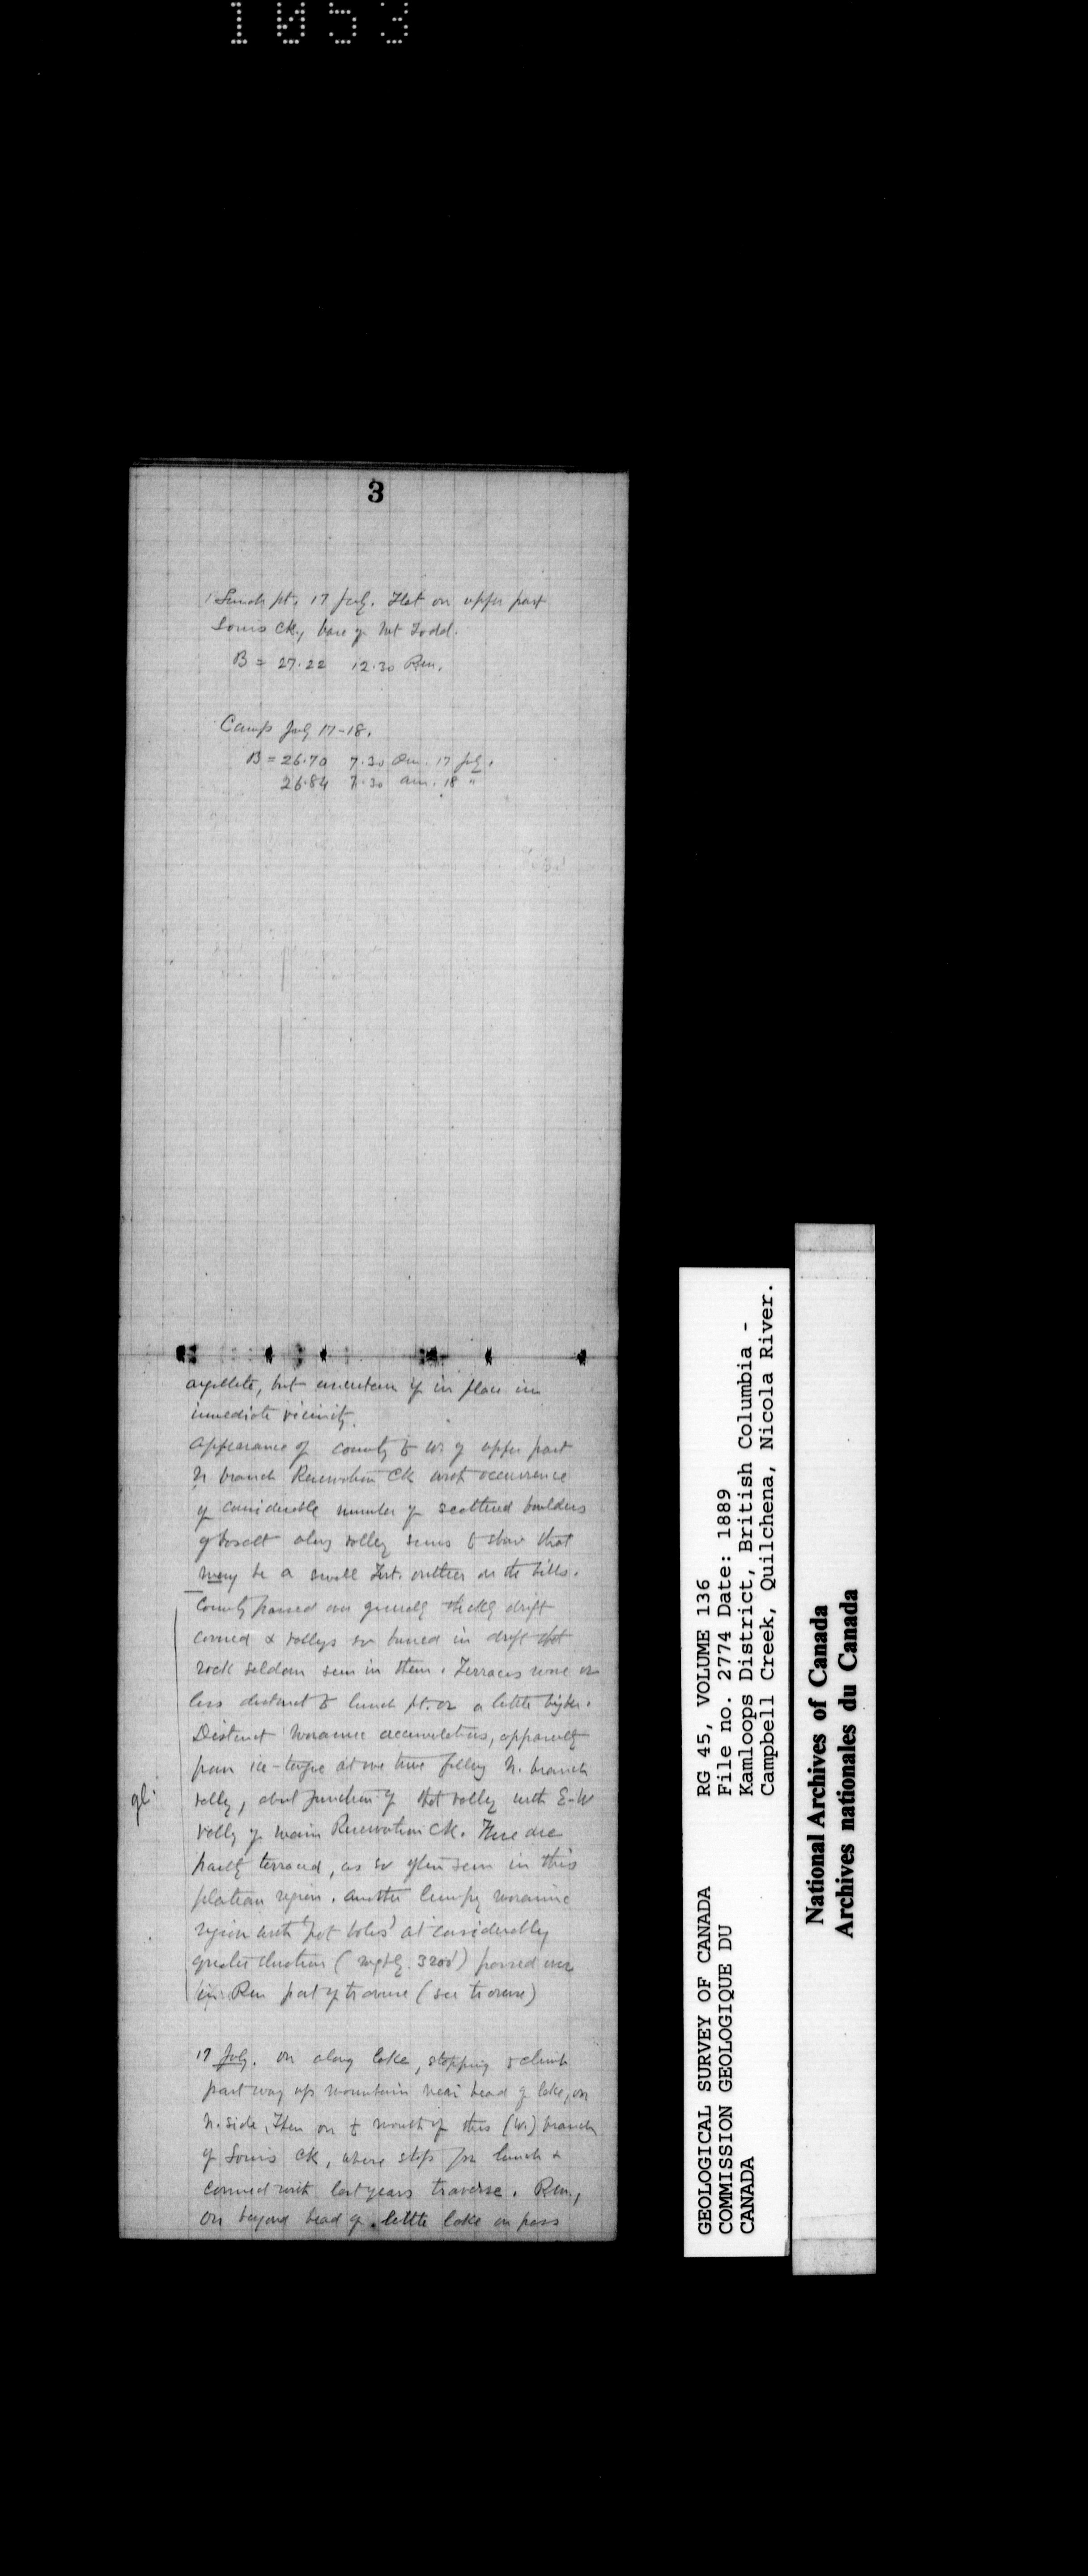 1053
3
Lunch pt. 17 July. Flat on upper part
Louis Ck, base of Mt Todd.
B = 27.22 12.30 Pm.
Camp July 17-18.
B = 26.70 7.30 Pm. 17 July.
26.84 7.30 am. 18 "
argillite, but uncertain if in place in
immediate vicinity.
Appearance of country to W. of upper part
N. branch Reservation Ck and occurrence
of considerable number of scattered boulders
of basalt along valley seems to show that
may be a small Tert. outlier on the hills.
Country passed over generally thickly drift
covered & valleys so buried in drift that
rock seldom seen in them. Terraces more or
less distinct to lunch pt. or a little higher.
Distinct moraine accumulations, apparently
from ice-tongue at one time filling N. branch
gl.
valley, about junction of that valley with E-W
valley of main Reservation Ck. These are
partly terraced, as so often seen in this
plateau region. Another lumpy moraine
region with 'pot holes' at considerably
greater elevation ( 3200') passed over
in Pm part of traverse (see traverse)
17 July. On along lake, stopping to climb
part way up mountain near head of lake, on
N. side. Then on to mouth of this (W.) branch
of Louis Ck, where stop for lunch &
connect with last years traverse. Pm.,
on beyond head of little lake on pass
GEOLOGICAL SURVEY OF CANADA
COMMISSION GEOLOGIQUE DU
CANADA
RG 45, VOLUME 136
File no. 2774 Date: 1889
Kamloops District, British Columbia -
Campbell Creek, Quilchena, Nicola River.
National Archives of Canada
Archives nationales du Canada